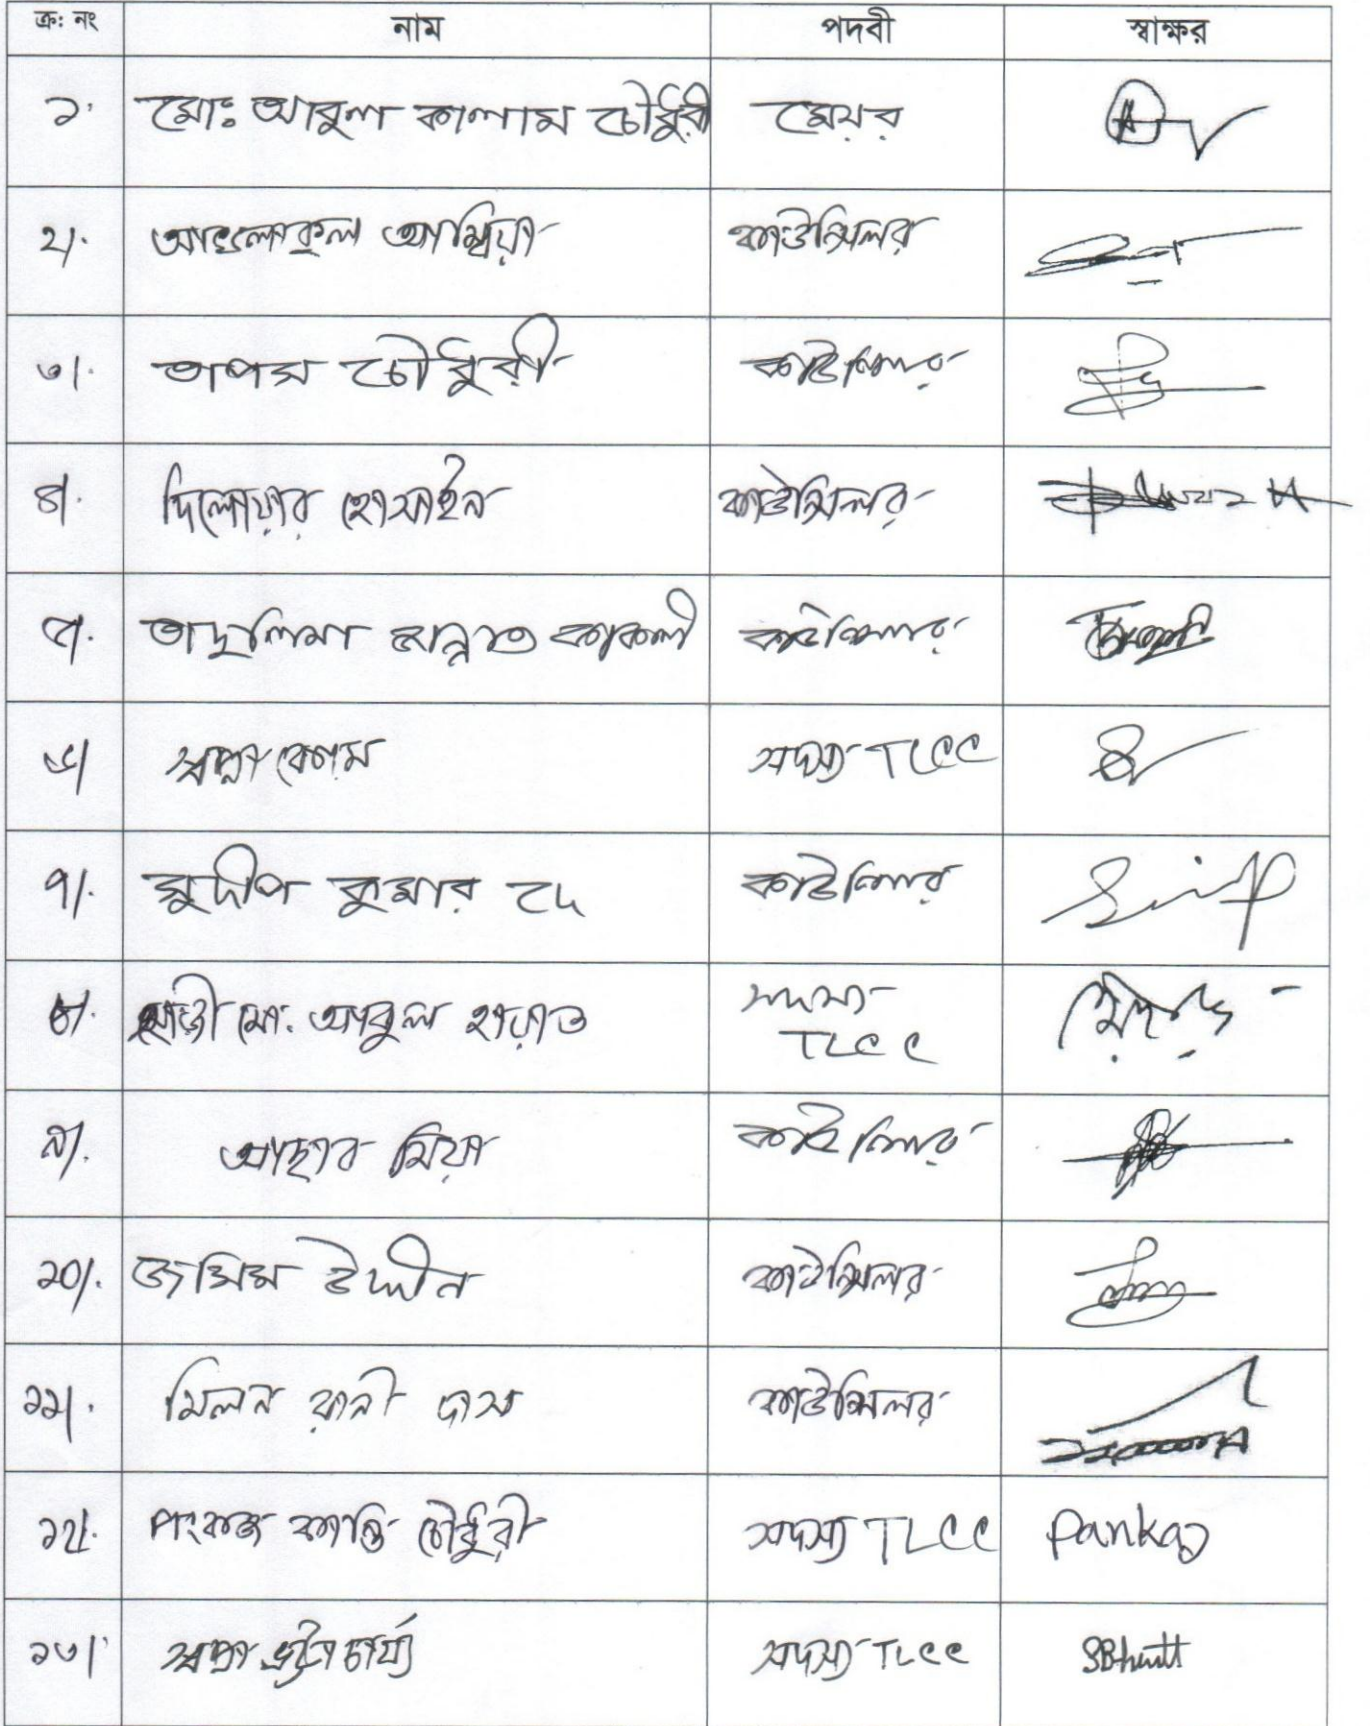 ক্র: নং নাম পদবী স্বাক্ষর
১· মোঃ আবুল কালাম চৌধুরী মেয়র
২/· আম্বিয়া কাউন্সিলর
৩/· তাপস চৌধুরী কাউন্সিলর
৪/· দিলোয়ার হোসাইন কাউন্সিলর
৫/· জান্নাত কাকলী কাউন্সিলর
৬/ স্বপ্না বেগম সদস্য TLCC
৭/· সুদীপ কুমার দে কাউন্সিলর
৮/· হাজী মো. আবুল হায়াত সদস্য
TLCC
৯/· আছাব মিয়া কাউন্সিলর
১০/· জসিম উদ্দীন কাউন্সিলর
১১/· মিলন রানী দাস কাউন্সিলর
১২/· পংকজ কান্তি চৌধুরী সদস্য TLCC Pankaj
১৩/· স্বপ্না ভট্টাচার্য্য সদস্য TLCC SBhatt